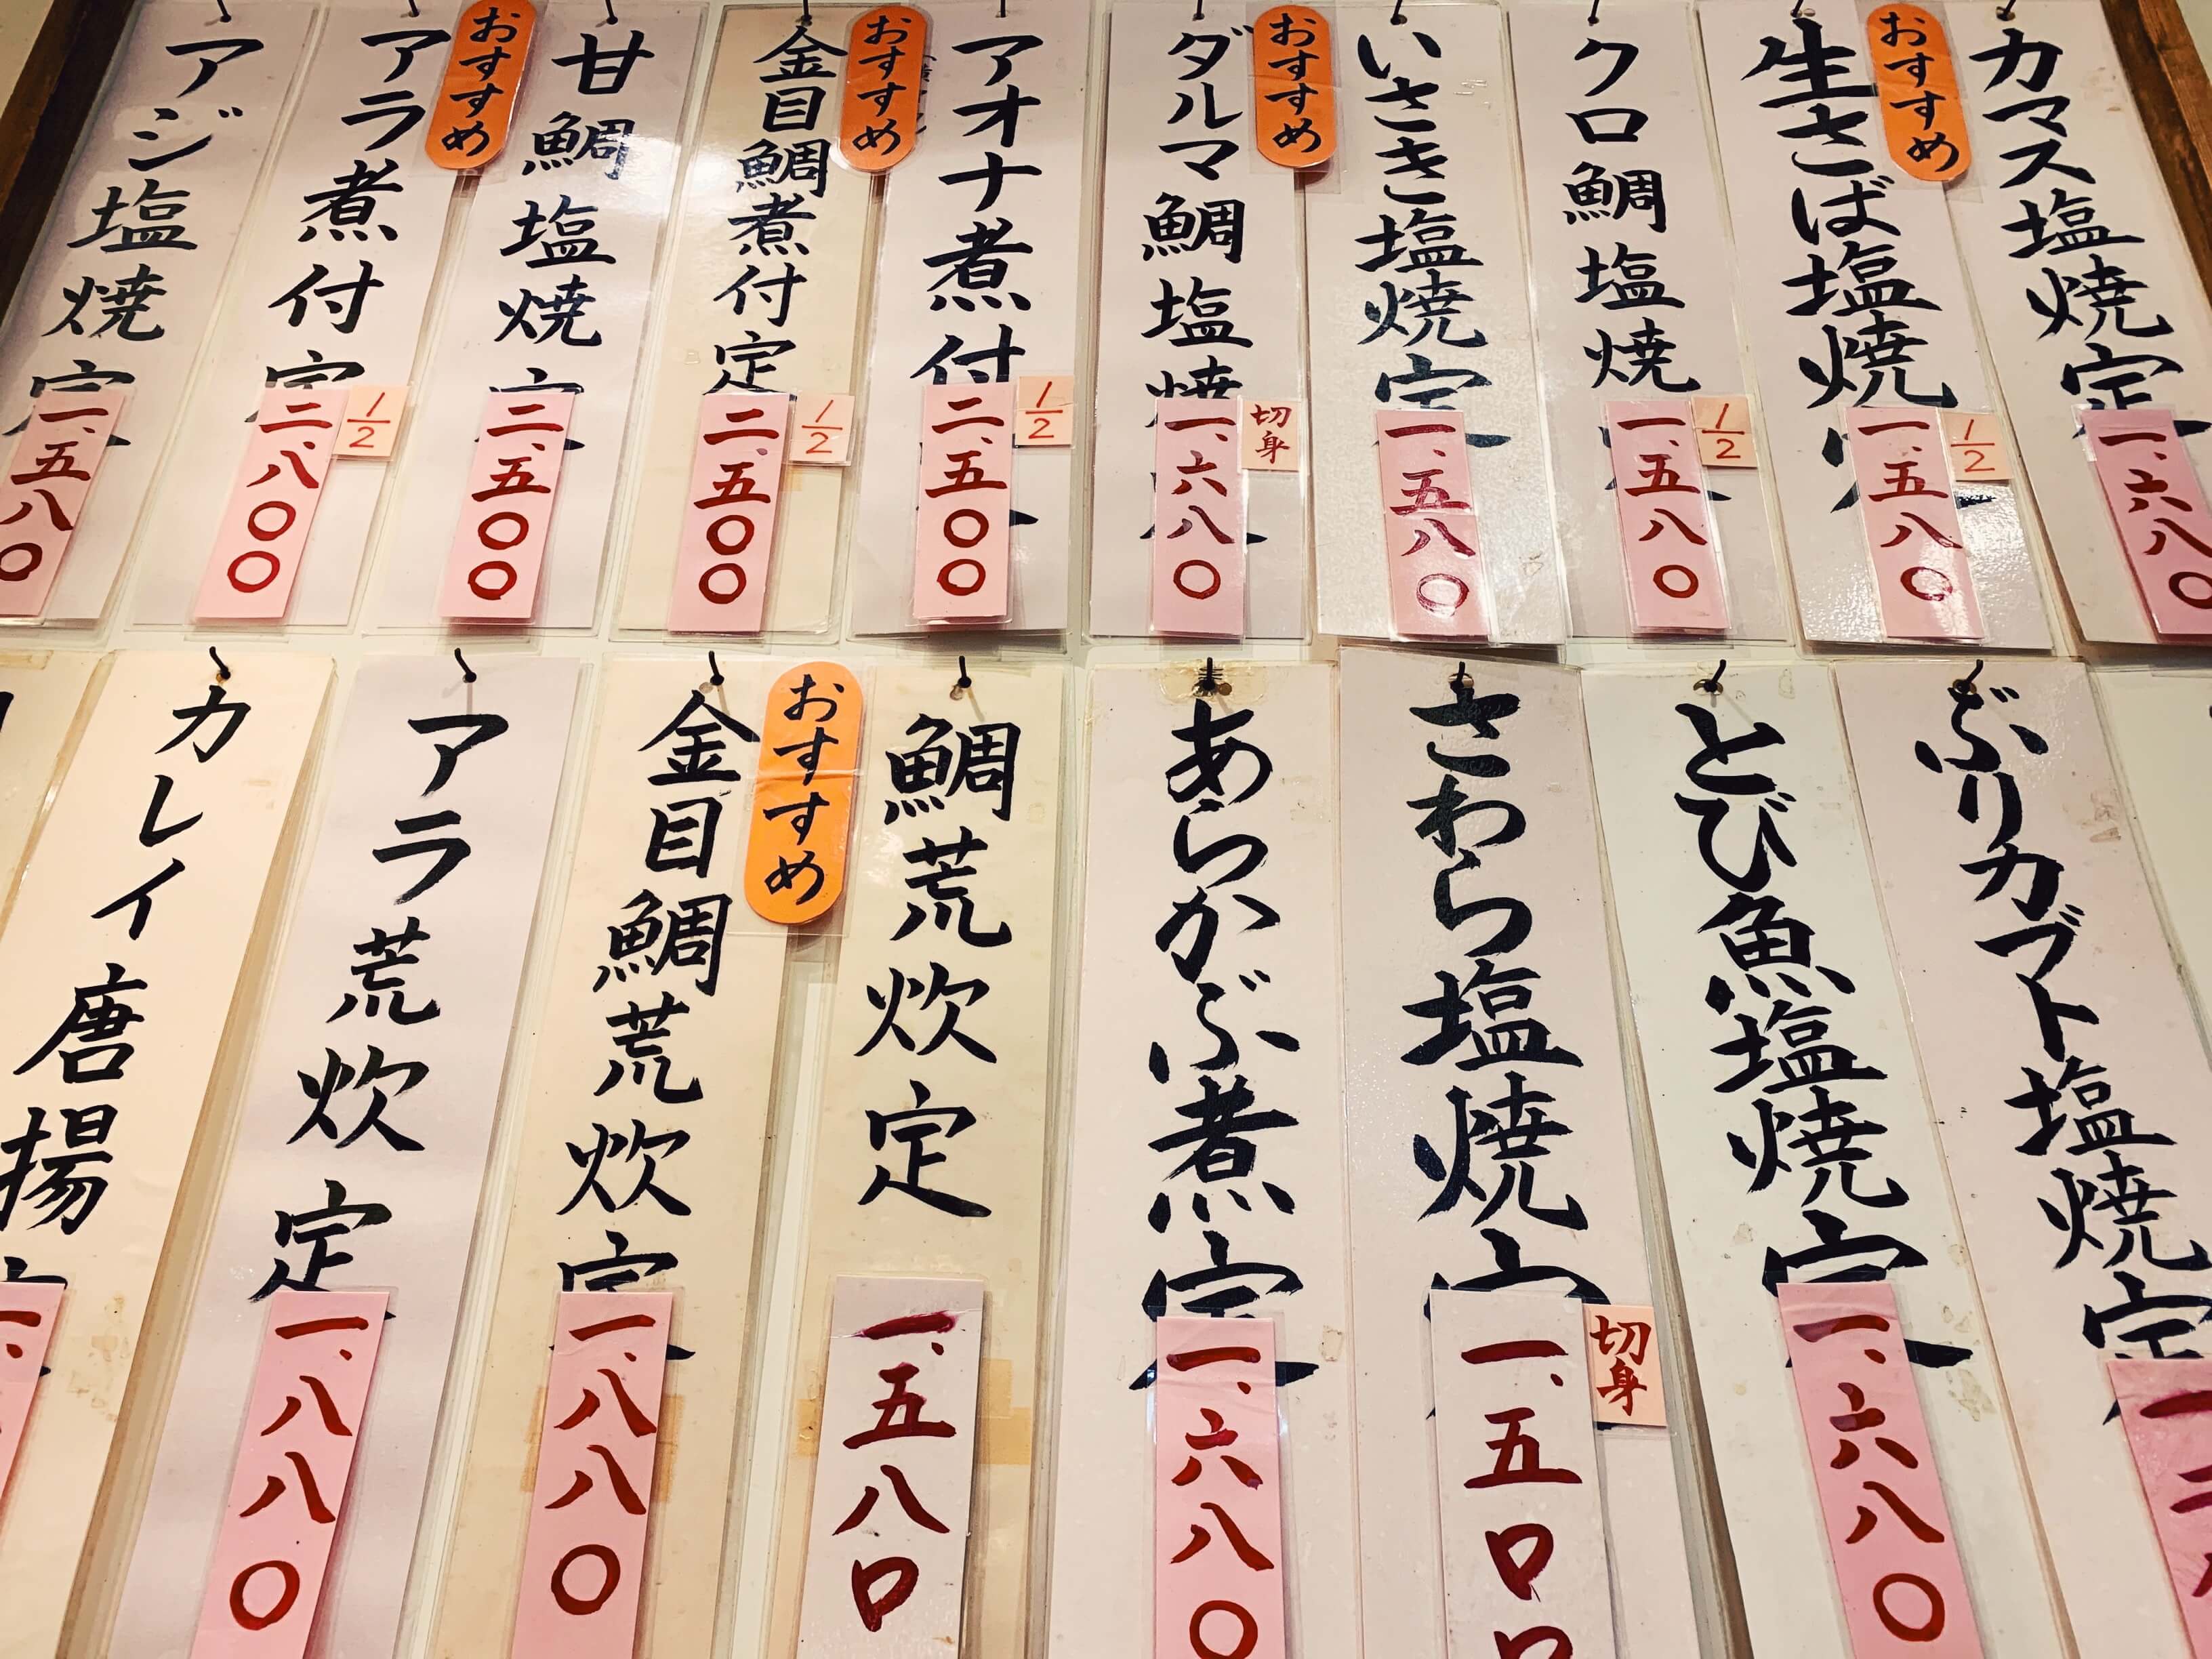 カマス塩焼定
一、六八〇
おすすめ
生さば塩焼
1/2
一、五八〇
クロ鯛塩焼
1/2
一、五八〇
いさき塩焼定
一、五八〇
おすすめ
ダルマ鯛塩焼
切身
一、六八〇
アオナ煮付
1/2
二、五〇〇
おすすめ
金目鯛煮付定
1/2
二、五〇〇
甘鯛塩焼定
二、五〇〇
おすすめ
アラ煮付定
1/2
二、八〇〇
アジ塩焼定
一、五八〇
ぶりカブト塩焼定
とび魚塩焼定
一、六八〇
さわら塩焼定
切身
一、五〇〇
あらかぶ煮定
一、六八〇
鯛荒炊定
一、五八〇
おすすめ
金目鯛荒炊定
一、八八〇
アラ荒炊定
一、八八〇
カレイ唐揚